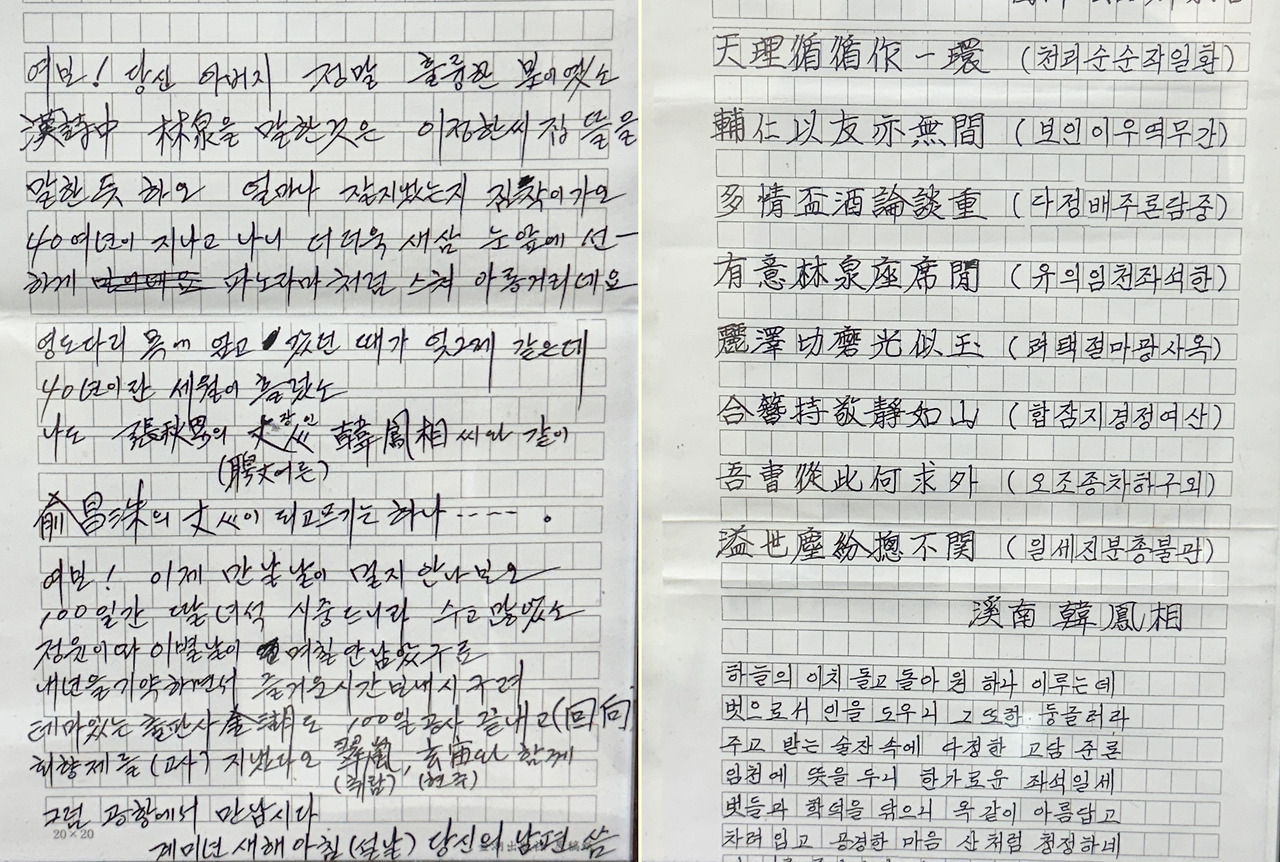 여보! 당신 아버지 정말 훌륭한 분이였소
漢詩中 林泉을 말한것은 이정한씨집 뜰을
말한듯 하오 얼마나 잘지냈는지 짐작이가오
40여년이 지나고 나니 더더욱 새삼 눈앞에 선-
하게 파노라마처럼 스쳐 아롱거리네요
영도다리 목에 앉고 있던 때가 엊그제 같은데
40년이란 세월이 흘렀소
나도 張秋男의 丈人 장인 韓鳳相씨와 같이
(聘丈어른)
俞昌洙의 丈人이 되고프기는 하나 ······ 。
여보! 이제 만날날이 멀지 안나보오
100일간 딸녀석 시중드니라 수고많았소
정윤이와 이별날이 며칠안남았구료
내년을 기약하면서 즐거운시간보내시구려
테마있는 출판사 金湖도 100일공사 끝내고(回向)
회향제를 (고사) 지냈다오 翠嵐, 玄宙와 함께
(취람) (현주)
그럼 공항에서 만납시다
20×20
계미년 새해 아침 (설날) 당신의 남편 씀
天理循循作一環 (천리순순작일환)
輔仁以友亦無間 (보인이우역무간)
多情盃酒論談重 (다정배주론담중)
有意林泉座席閒 (유의임천좌석한)
麗澤切磨光似玉 (려택절마광사옥)
合簪持敬靜如山 (합잠지경정여산)
吾曺從此何求外 (오조종차하구외)
溢世塵紛摠不関 (일세진분총불관)
溪南 韓鳳相
하늘의 이치 돌고 돌아 원 하나 이루는데
벗으로서 인을 도우니 그 또한 둥글러라
주고 받는 술잔 속에 다정한 고담 준론
임천에 뜻을 두니 한가로운 좌석일세
벗들과 학덕을 닦으니 옥 같이 아름답고
차려 입고 공경한 마음 산처럼 청정하네